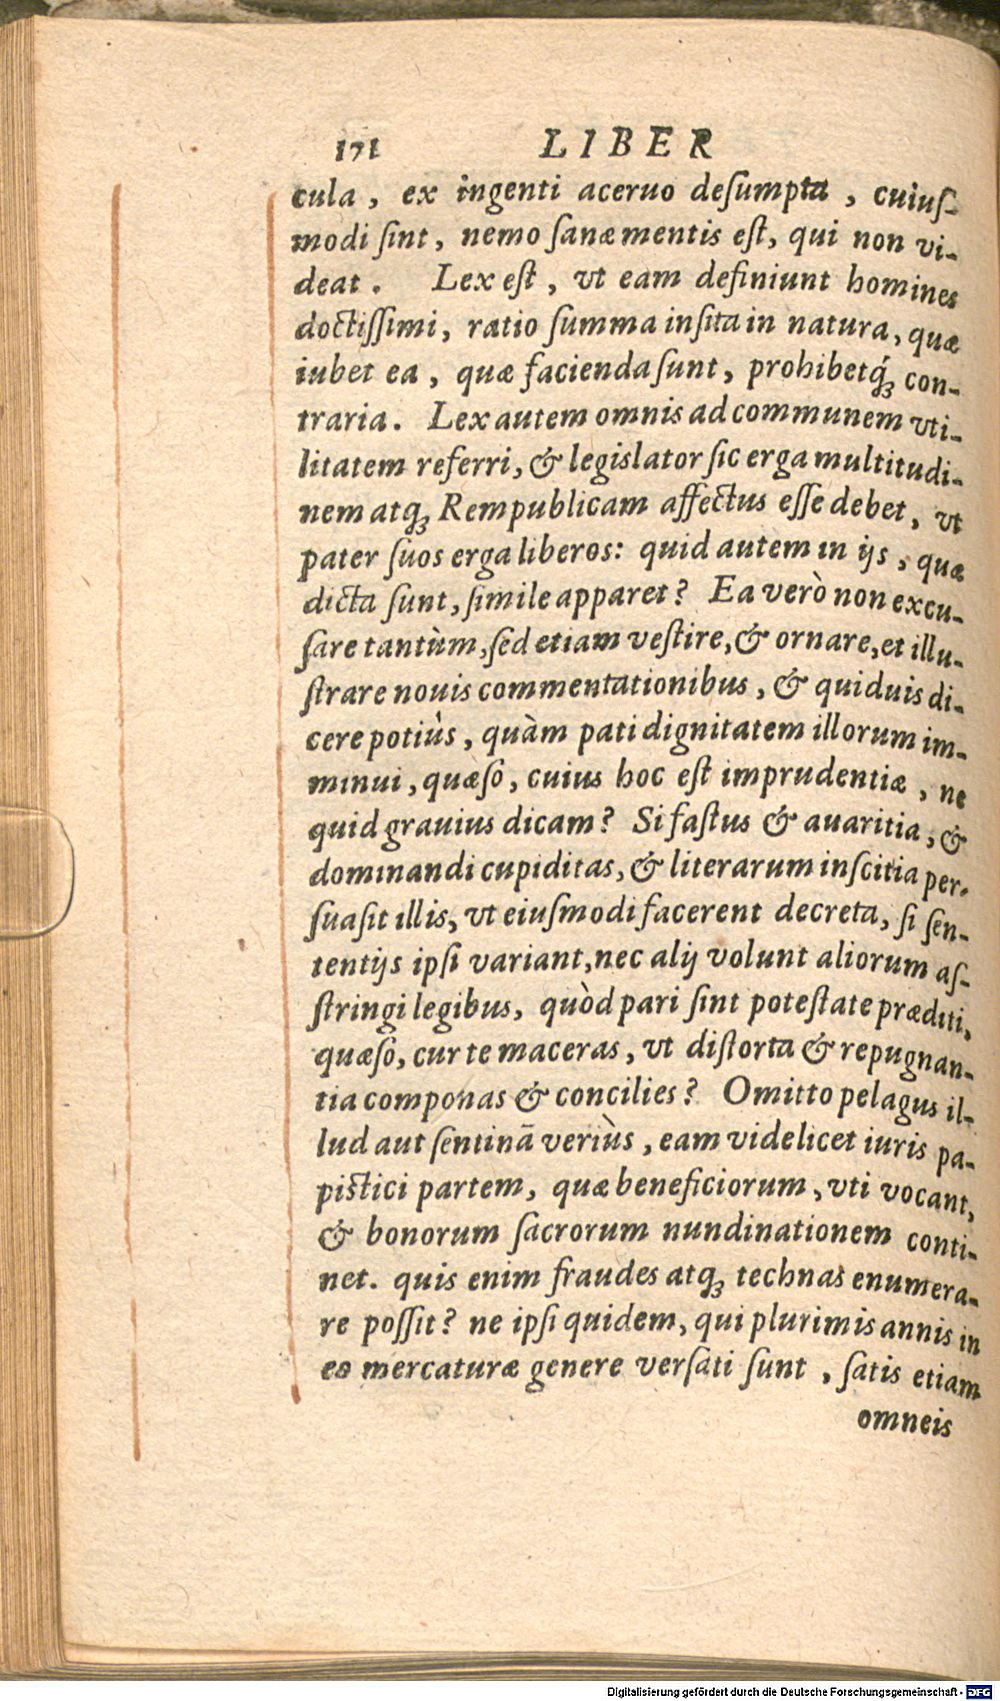 171 LIBER
cula, ex ingenti aceruo deſumpta, cuiuſ-
modi ſint, nemo ſanæ mentis eſt, qui non vi-
deat. Lex eſt, vt eam definiunt homines
doctiſſimi, ratio ſumma inſita in natura, quæ
iubet ea, quæ facienda ſunt, prohibetq́ꝫ con-
traria. Lex autem omnis ad communem vti-
litatem referri, & legislator ſic erga multitudi-
nem atqꝫ Rempublicam affectus eſſe debet, vt
pater ſuos erga liberos: quid autem in ijs, quæ
dicta ſunt, ſimile apparet? Ea verò non excu-
ſare tantùm, ſed etiam veſtire, & ornare, et illu-
ſtrare nouis commentationibus, & quiduis di-
cere potiùs, quàm pati dignitatem illorum im-
minui, quæſo, cuius hoc eſt imprudentiæ, ne
quid grauius dicam? Si faſtus & auaritia, &
dominandi cupiditas, & literarum inſcitia per-
ſuaſit illis, vt eiuſmodi facerent decreta, ſi ſen-
tentijs ipſi variant, nec alij volunt aliorum aſ-
ſtringi legibus, quòd pari ſint poteſtate præditi,
quæſo, cur te maceras, vt diſtorta & repugnan-
tia componas & concilies? Omitto pelagus il-
lud aut ſentinã veriùs, eam videlicet iuris pa-
pistici partem, quæ beneficiorum, vti vocant,
& bonorum ſacrorum nundinationem conti-
net. quis enim fraudes atqꝫ technas enumera-
re poſſit? ne ipſi quidem, qui plurimis annis in
eo mercaturæ genere verſati ſunt, ſatis etiam
omneis
Digitalisierung gefördert durch die Deutsche Forschungsgemeinschaft - DFG